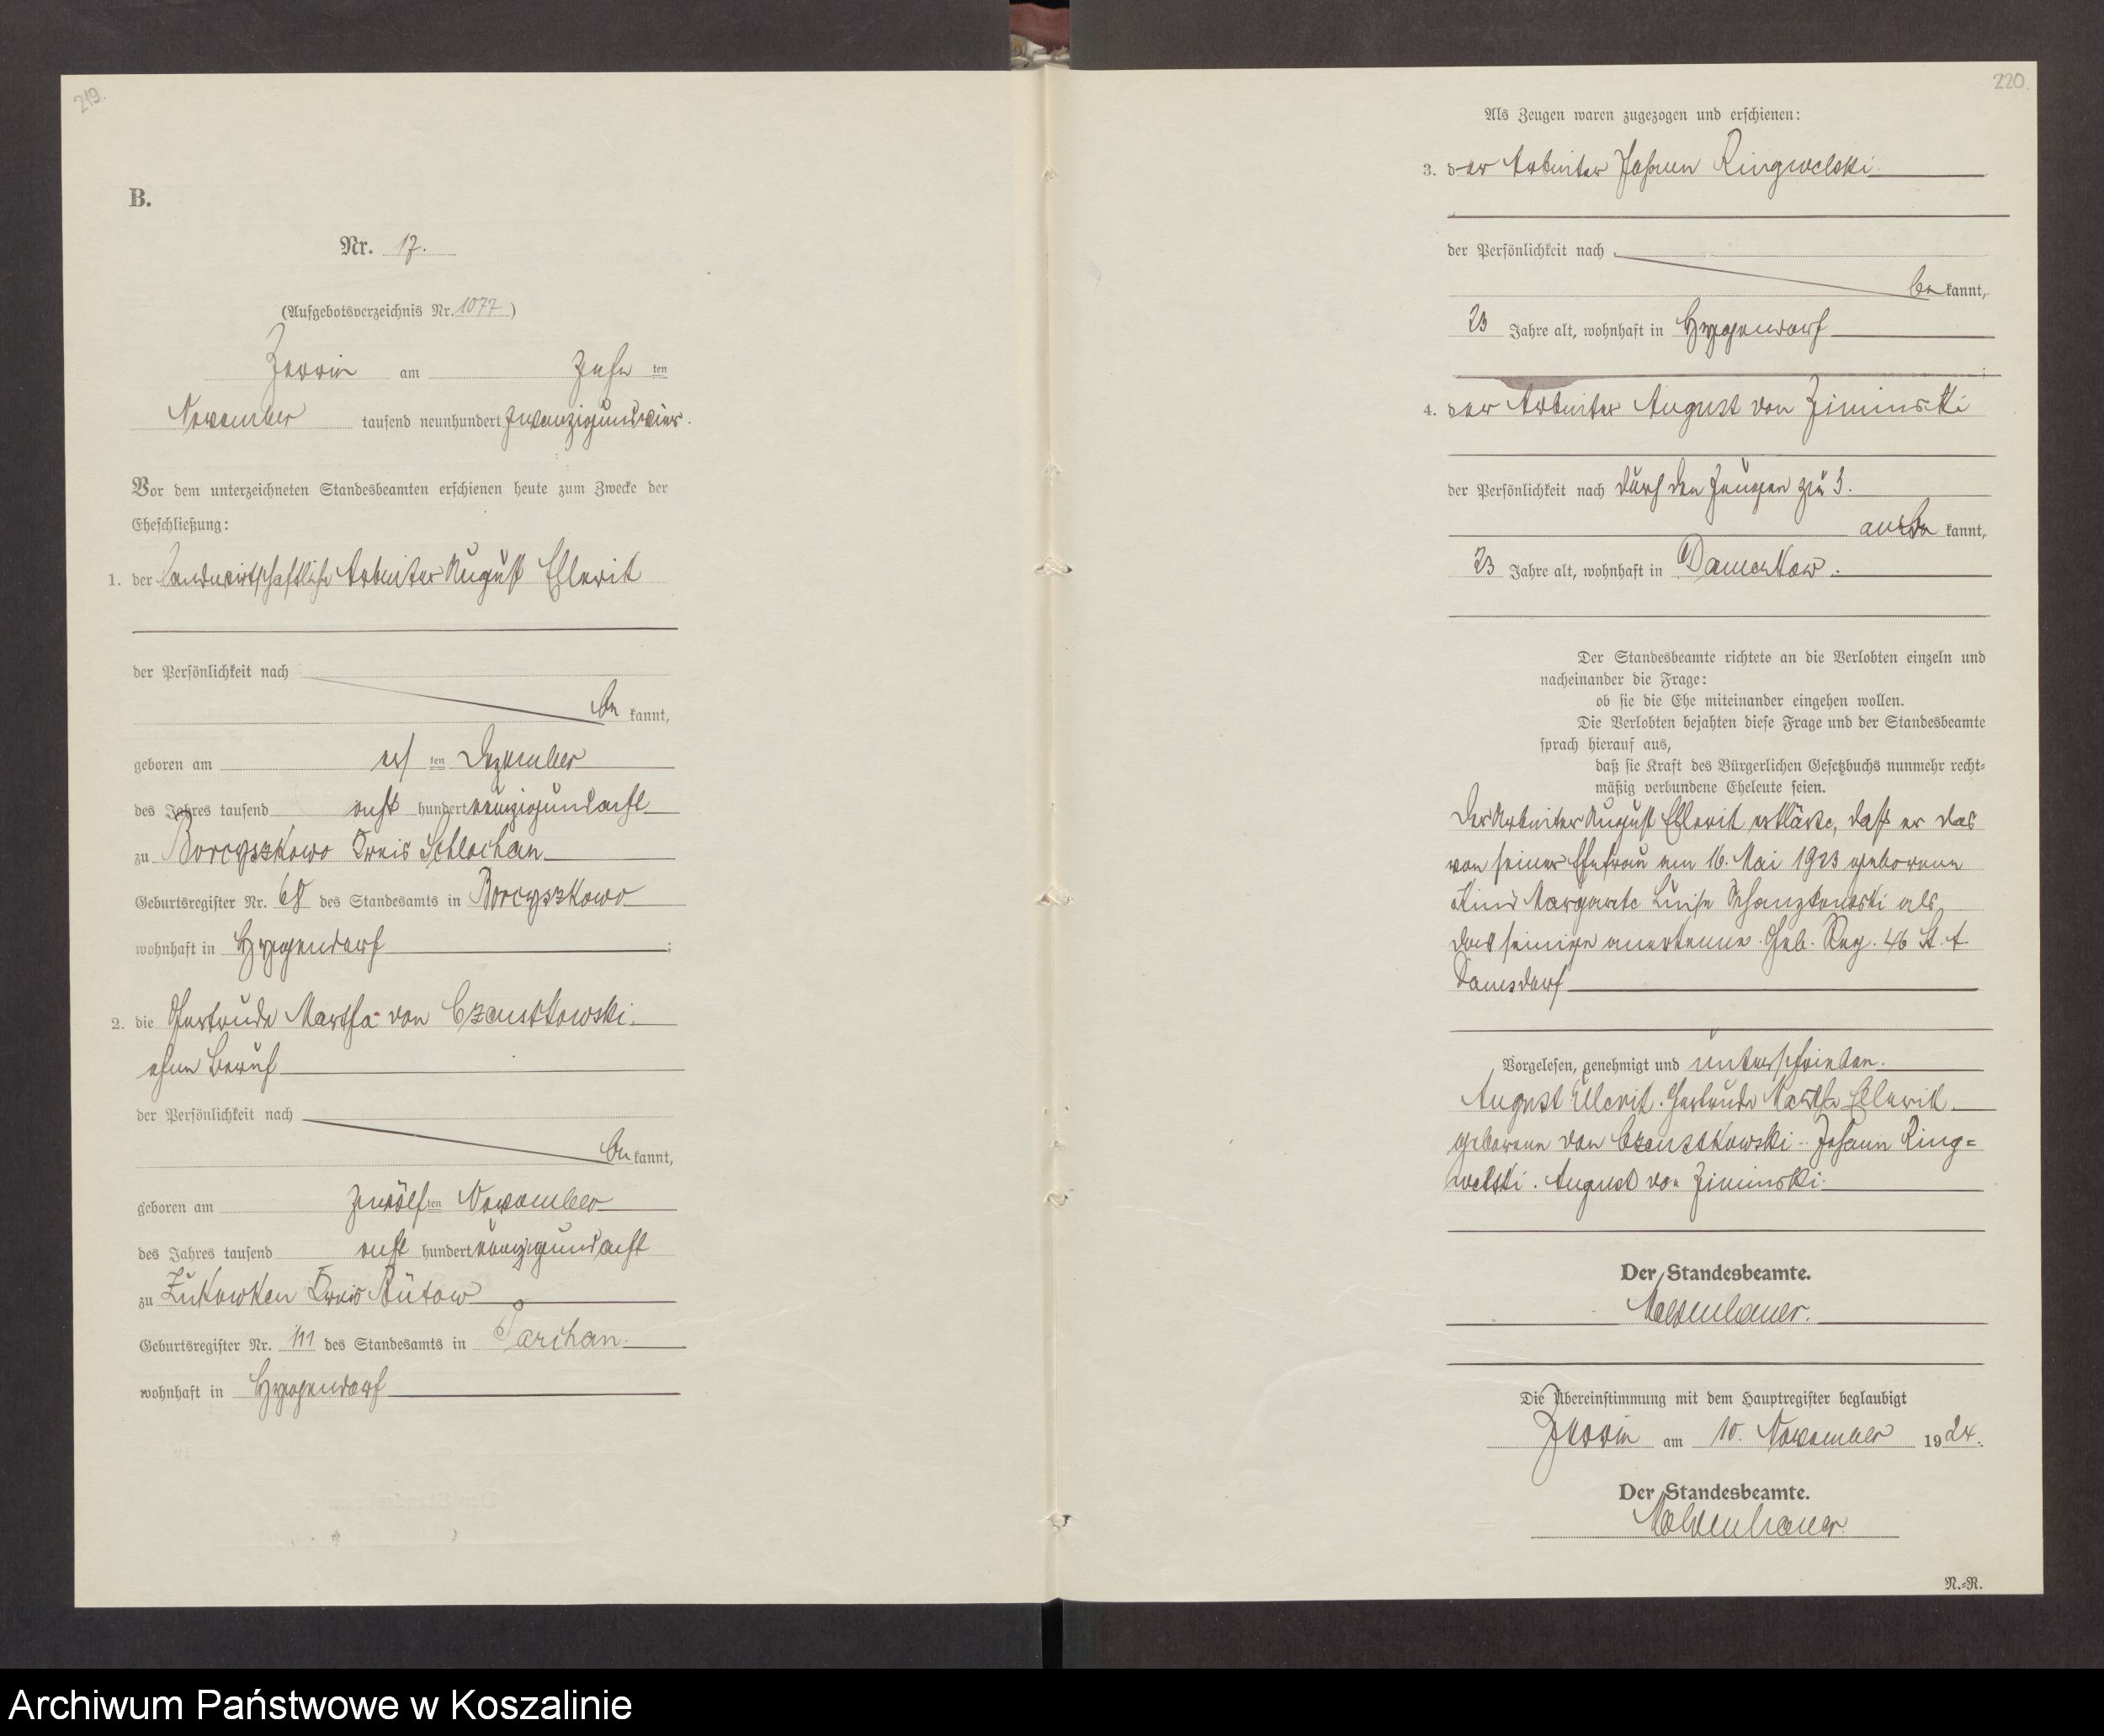 219.
B.
Nr. 17.
(Aufgebotsverzeichnis Nr. 1077)
Zerrin am zehn ten
November tausend neunhundert zwanzigundvier.
Vor dem unterzeichneten Standesbeamten erschienen heute zum Zwecke der
Eheschließung:
1. der landwirtschaftliche Arbeiter August Ellerik
der Persönlichkeit nach
be kannt,
geboren am ers ten Dezember
des Jahres tausend acht hundert neunzigundacht
zu Borcyszkowo Kreis Schlochau
Geburtsregister Nr. 68 des Standesamts in Borcyszkowo
wohnhaft in Hygendorf ;
2. die Gertrude Martha von Czenstkowski
ohne Beruf
der Persönlichkeit nach
be kannt,
geboren am zwölf ten November
des Jahres tausend acht hundert neunzigundacht
zu Zukowken Kreis Bütow
Geburtsregister Nr. 111 des Standesamts in Parchau.
wohnhaft in Hygendorf
220.
Als Zeugen waren zugezogen und erschienen:
3. der Arbeiter Johann Ringwelski
der Persönlichkeit nach
be kannt,
23 Jahre alt, wohnhaft in Hygendorf
;
4. der Arbeiter August von Ziminski
der Persönlichkeit nach durch den Zeugen zu 3.
kannt,
23 Jahre alt, wohnhaft in Damerkow.
Der Standesbeamte richtete an die Verlobten einzeln und
nacheinander die Frage:
ob sie die Ehe miteinander eingehen wollen.
Die Verlobten bejahten diese Frage und der Standesbeamte
sprach hierauf aus,
daß sie Kraft des Bürgerlichen Gesetzbuchs nunmehr recht-
mäßig verbundene Eheleute seien.
Der Arbeiter August Ellerik erklärte, daß er das
von seiner Ehefrau am 16. Mai 1923 geborene
Kind Margarete Luise als
das seinige anerkenne. Geb. Reg. 46 St. A.
Damsdorf
Vorgelesen, genehmigt und unterschrieben.
August Ellerik. Gertrude Martha Ellerik
geborene von Czenstkowski. Johann Ring=
welski. August von Ziminski.
Der Standesbeamte.
Moldenhauer.
Die Übereinstimmung mit dem Hauptregister beglaubigt
Zerrin am 10. November 1924.
Der Standesbeamte.
Moldenhauer.
N.-R.
Archiwum Państwowe w Koszalinie